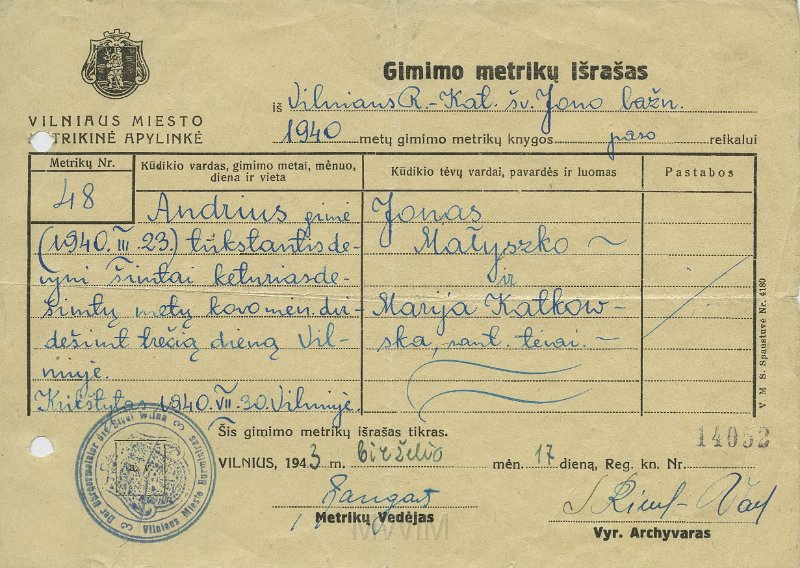 Gimimo metrikų išrašas
iš Vilniaus R.-Kat. šv. Jono bažn.
VILNIAUS MIESTO
METRIKINĖ APYLINKĖ
1940 metų gimimo metrikų knygos paso reikalui
Metrikų Nr.
48
Kūdikio vardas, gimimo metai, mėnuo,
diena ir vieta
Kūdikio tėvų vardai, pavardės ir luomas
Pastabos
Andrius gimė
(1940.III.23.) tūkstantis de-
vyni šimtai keturiasde-
šimtų metų kovo mėn. dvi
dešimt trečią dieną Vil-
niuje.
Krikštytas 1940.VII.30. Vilniuje.
Jonas
Małyszko
ir
Marija Katkow-
ska, sant. tėvai.
V. M. S. Spaustuvė Nr. 4180
Šis gimimo metrikų išrašas tikras.
VILNIUS, 1943 m. birželio mėn. 17 dieną, Reg. kn. Nr. 14052
Metrikų Vedėjas
Vyr. Archyvaras
Der Bürgermeister der Stadt Wilna
Vilniaus Miesto
MWIM